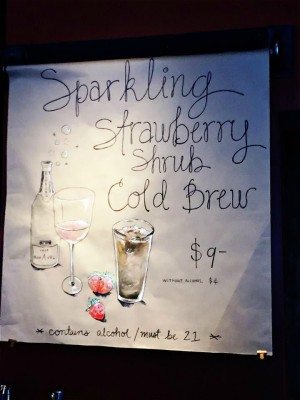 Sparkling
Strawberry
Shrub
Cold Brew
$9-
WITHOUT ALCOHOL $4
* contains alcohol / must be 21 *